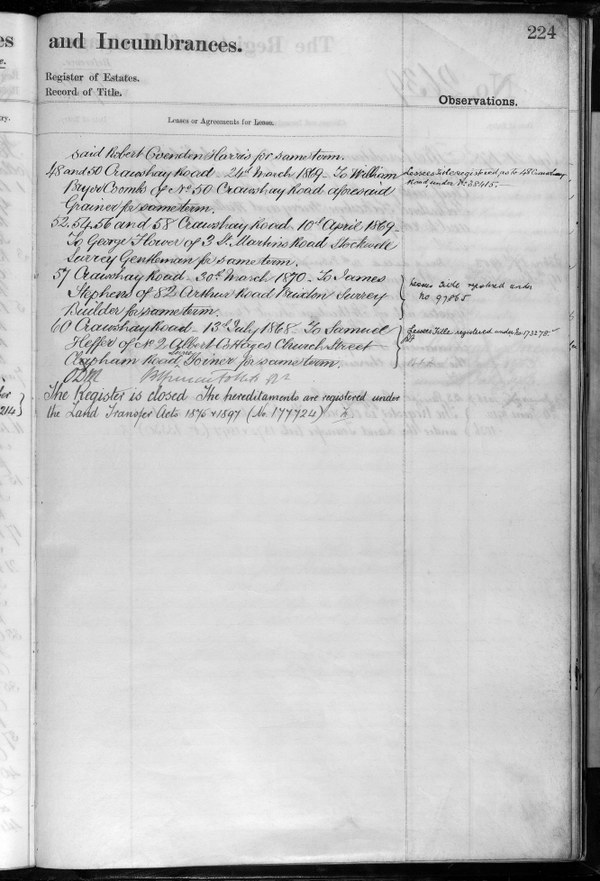 es
and Incumbrances.
224
Register of Estates.
Record of Title.
Observations.
Leases or Agreements for Lease.
said Robert Coenden Harris for same term.
48 and 50 Crawshay Road - 24th March 1869 - To William
Bryer Coombs of No. 50 Crawshay Road aforesaid
Grainer for same term.
Lessees Title registered as to 48 Crawshay
Road, under No. 38415.
52. 54. 56 and 58 Crawshay Road. 10th April 1869 -
To George Flower of 3 St. Martins Road Stockwell
Surrey Gentleman for same term.
57 Crawshay Road - 30th March 1870 - To James
Stephens of 82 Arthur Road Brixton Surrey
Builder for same term.
Lessees Title registered under
no 97865
60 Crawshay Road - 13th July 1868 To Samuel
Heffer of No 2 Albert Cottages Church Street
Clapham Road, Surrey Joiner for same term.
Lessees Title registered under No. 173278.
The Register is closed The hereditaments are registered under
the Land Transfer Acts 1875 & 1897 (No. 177724)